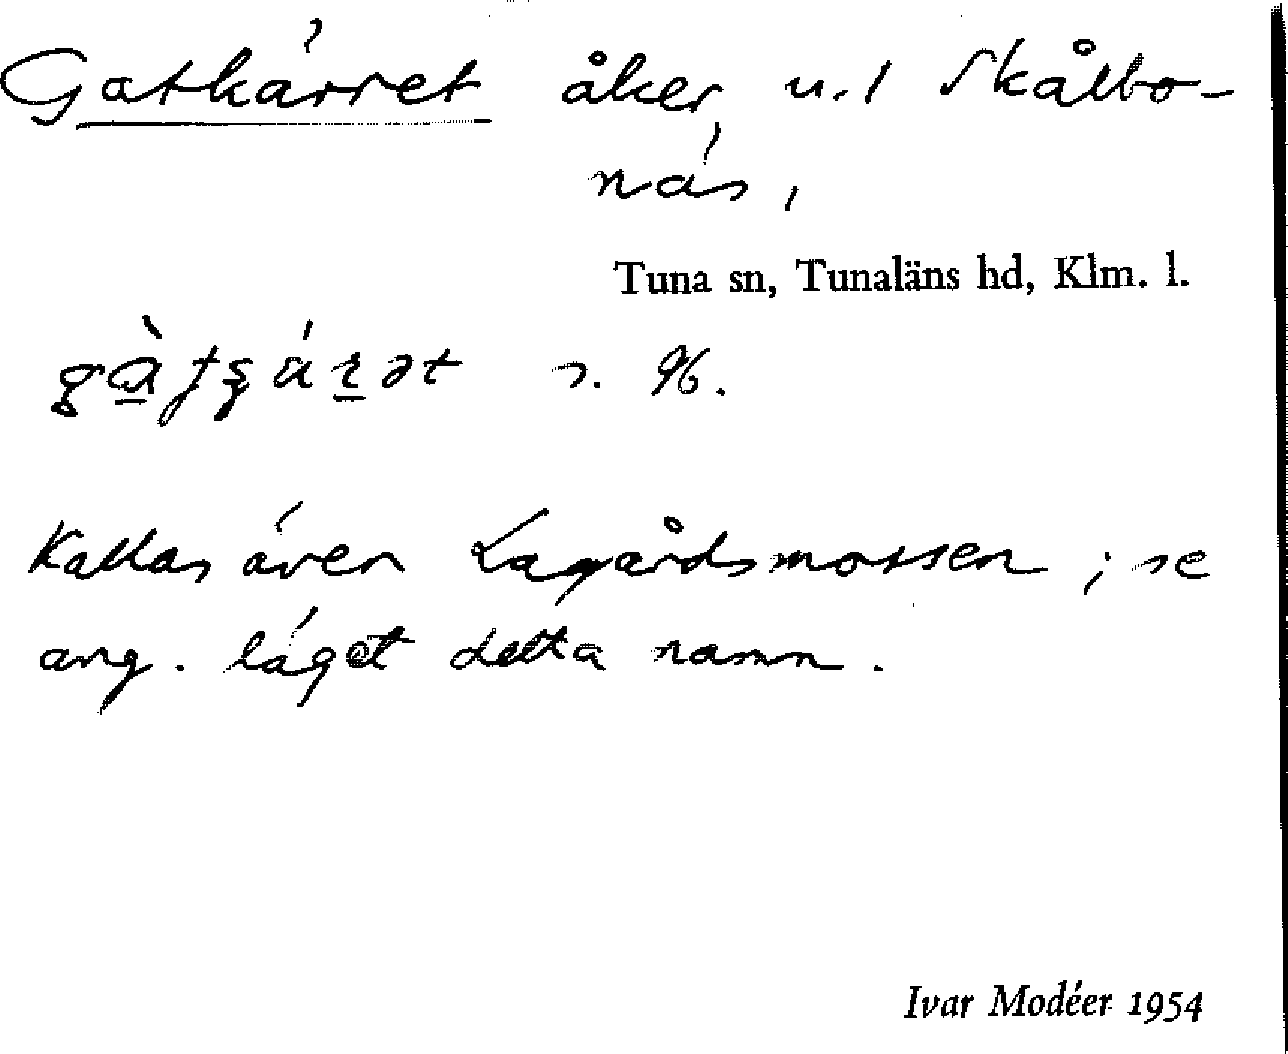 Gatkärret åker u. / Skålbo-
näs,
Tuna sn, Tunaläns hd, Klm. l.
s. 96.
Kallas även Lagårdsmossen; se
ang. läget detta namn.
Ivar Modéer 1954